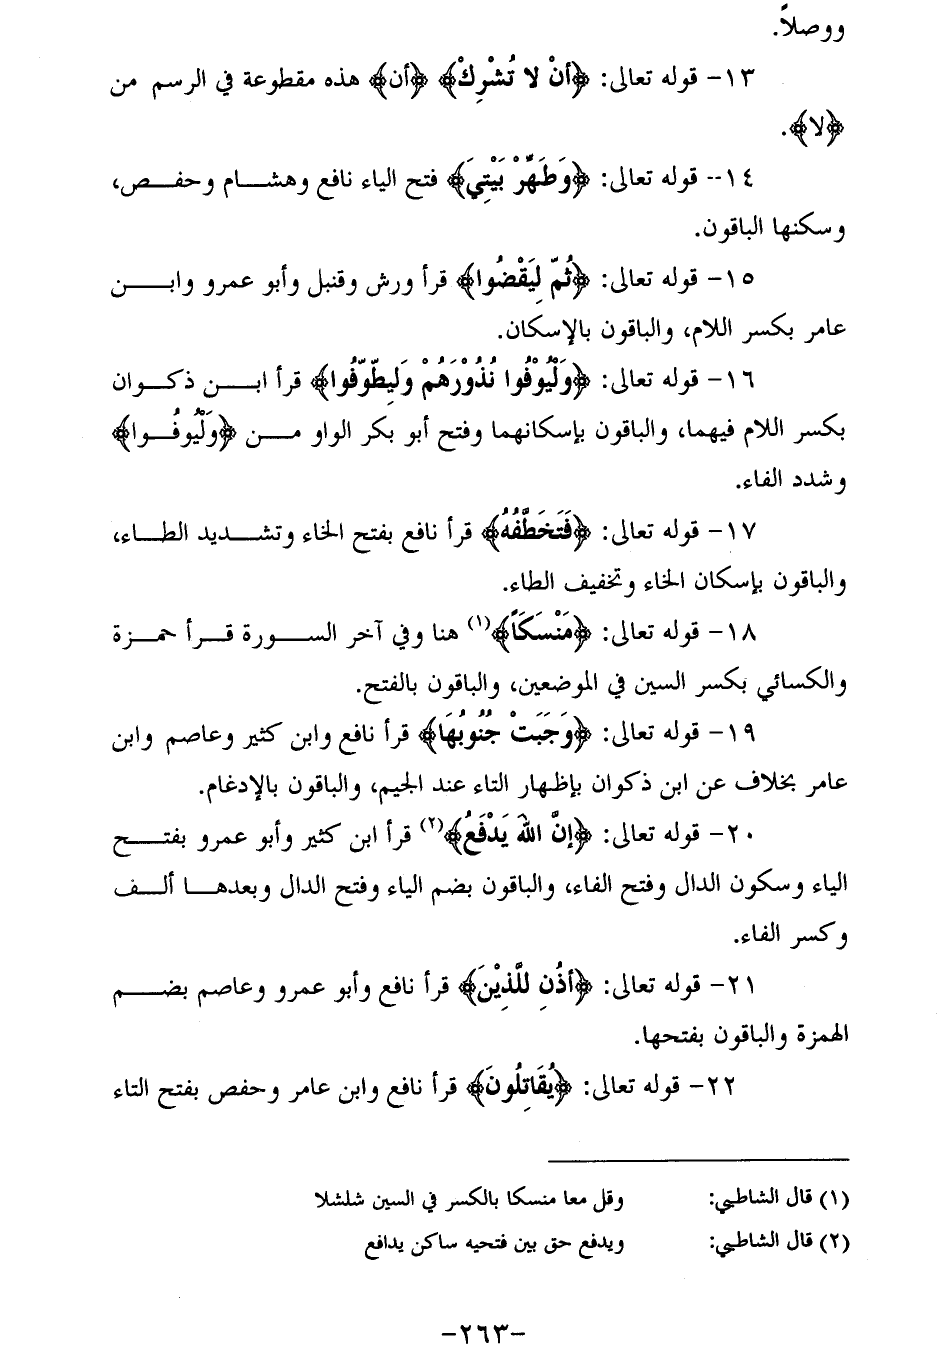 ووصلاً.
١٣- قوله تعالى: ﴿أنْ لا تُشْرِكْ﴾ ﴿أن﴾ هذه مقطوعة في الرسم من
﴿لا﴾.
١٤-- قوله تعالى: ﴿وَطَهِّرْ بَيْتِيَ﴾ فتح الياء نافع وهشام وحفص،
وسكنها الباقون.
١٥- قوله تعالى: ﴿ثُمّ لِيَقْضُوا﴾ قرأ ورش وقنبل وأبو عمرو وابن
عامر بكسر اللام، والباقون بالإسكان.
١٦- قوله تعالى: ﴿وَلْيُوْفُوا نُذُوْرَهُمْ وَلِيطّوّفُوا﴾ قرأ ابن ذكوان
بكسر اللام فيهما، والباقون بإسكانهما وفتح أبو بكر الواو من ﴿وَلْيُوفُوا﴾
وشدد الفاء.
١٧- قوله تعالى: ﴿فَتَخَطَّفُهُ﴾ قرأ نافع بفتح الخاء وتشديد الطاء،
والباقون بإسكان الخاء وتخفيف الطاء.
١٨- قوله تعالى: ﴿مَنْسَكَاً﴾(١) هنا وفي آخر السورة قرأ حمزة
والكسائي بكسر السين في الموضعين، والباقون بالفتح.
١٩- قوله تعالى: ﴿وَجَبَتْ جُنُوبُهَا﴾ قرأ نافع وابن كثير وعاصم وابن
عامر بخلاف عن ابن ذكوان بإظهار التاء عند الجيم، والباقون بالإدغام.
٢٠- قوله تعالى: ﴿إنَّ اللهَ يَدْفَعُ﴾(٢) قرأ ابن كثير وأبو عمرو بفتح
الياء وسكون الدال وفتح الفاء، والباقون بضم الياء وفتح الدال وبعدها ألف
وكسر الفاء.
٢١- قوله تعالى: ﴿أذُنِ للَّذِيْنَ﴾ قرأ نافع وأبو عمرو وعاصم بضم
الهمزة والباقون بفتحها.
٢٢- قوله تعالى: ﴿يُقَاتِلُونَ﴾ قرأ نافع وابن عامر وحفص بفتح التاء
(١) قال الشاطبي: وقل معا منسكا بالكسر في السين شلشلا
(٢) قال الشاطبي: ويدفع حق بين فتحيه ساكن يدافع
-٢٦٣-